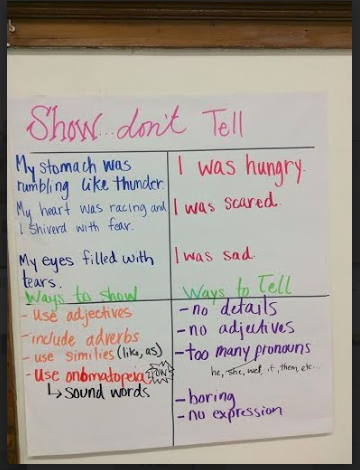 Show...don't Tell
My stomach was
rumbling like thunder.
My heart was racing and
I shiverd with fear.
My eyes filled with
tears.
I was hungry.
I was scared.
I was sad.
Ways to show
- use adjectives
- include adverbs
- use similies (like, as)
- use onomatopeia
↳ sound words
Ways to Tell
- no details
- no adjectives
- too many pronouns
he, she, it, them, etc...
- boring
- no expression